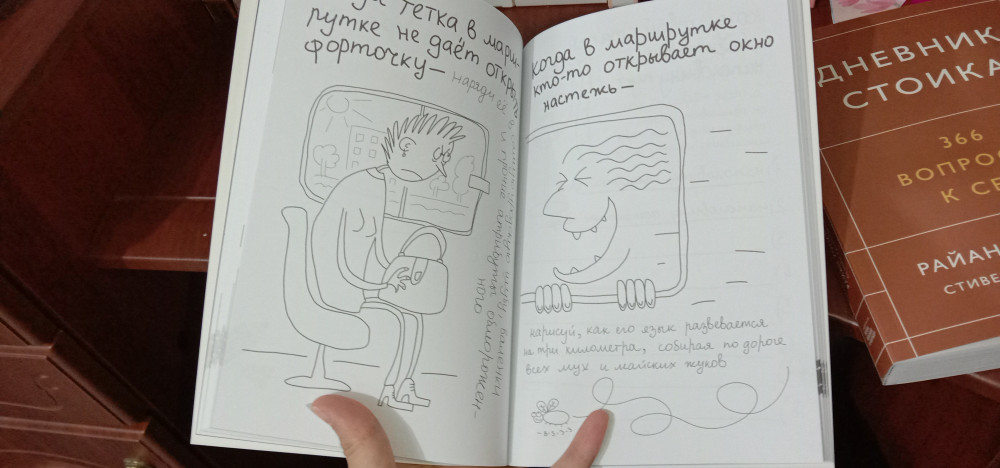 тетка в марш-
рутке не даёт открыть
форточку— наряди её
валенки
и прочие атрибуты обморожен-
ного
когда в маршрутке
кто-то открывает окно
настежь—
нарисуй, как его язык развевается
на три километра, собирая по дороге
всех мух и майских жуков
ДНЕВНИК
СТОИКА
366
ВОПРОС
К СЕ
РАЙАН
СТИВЕ